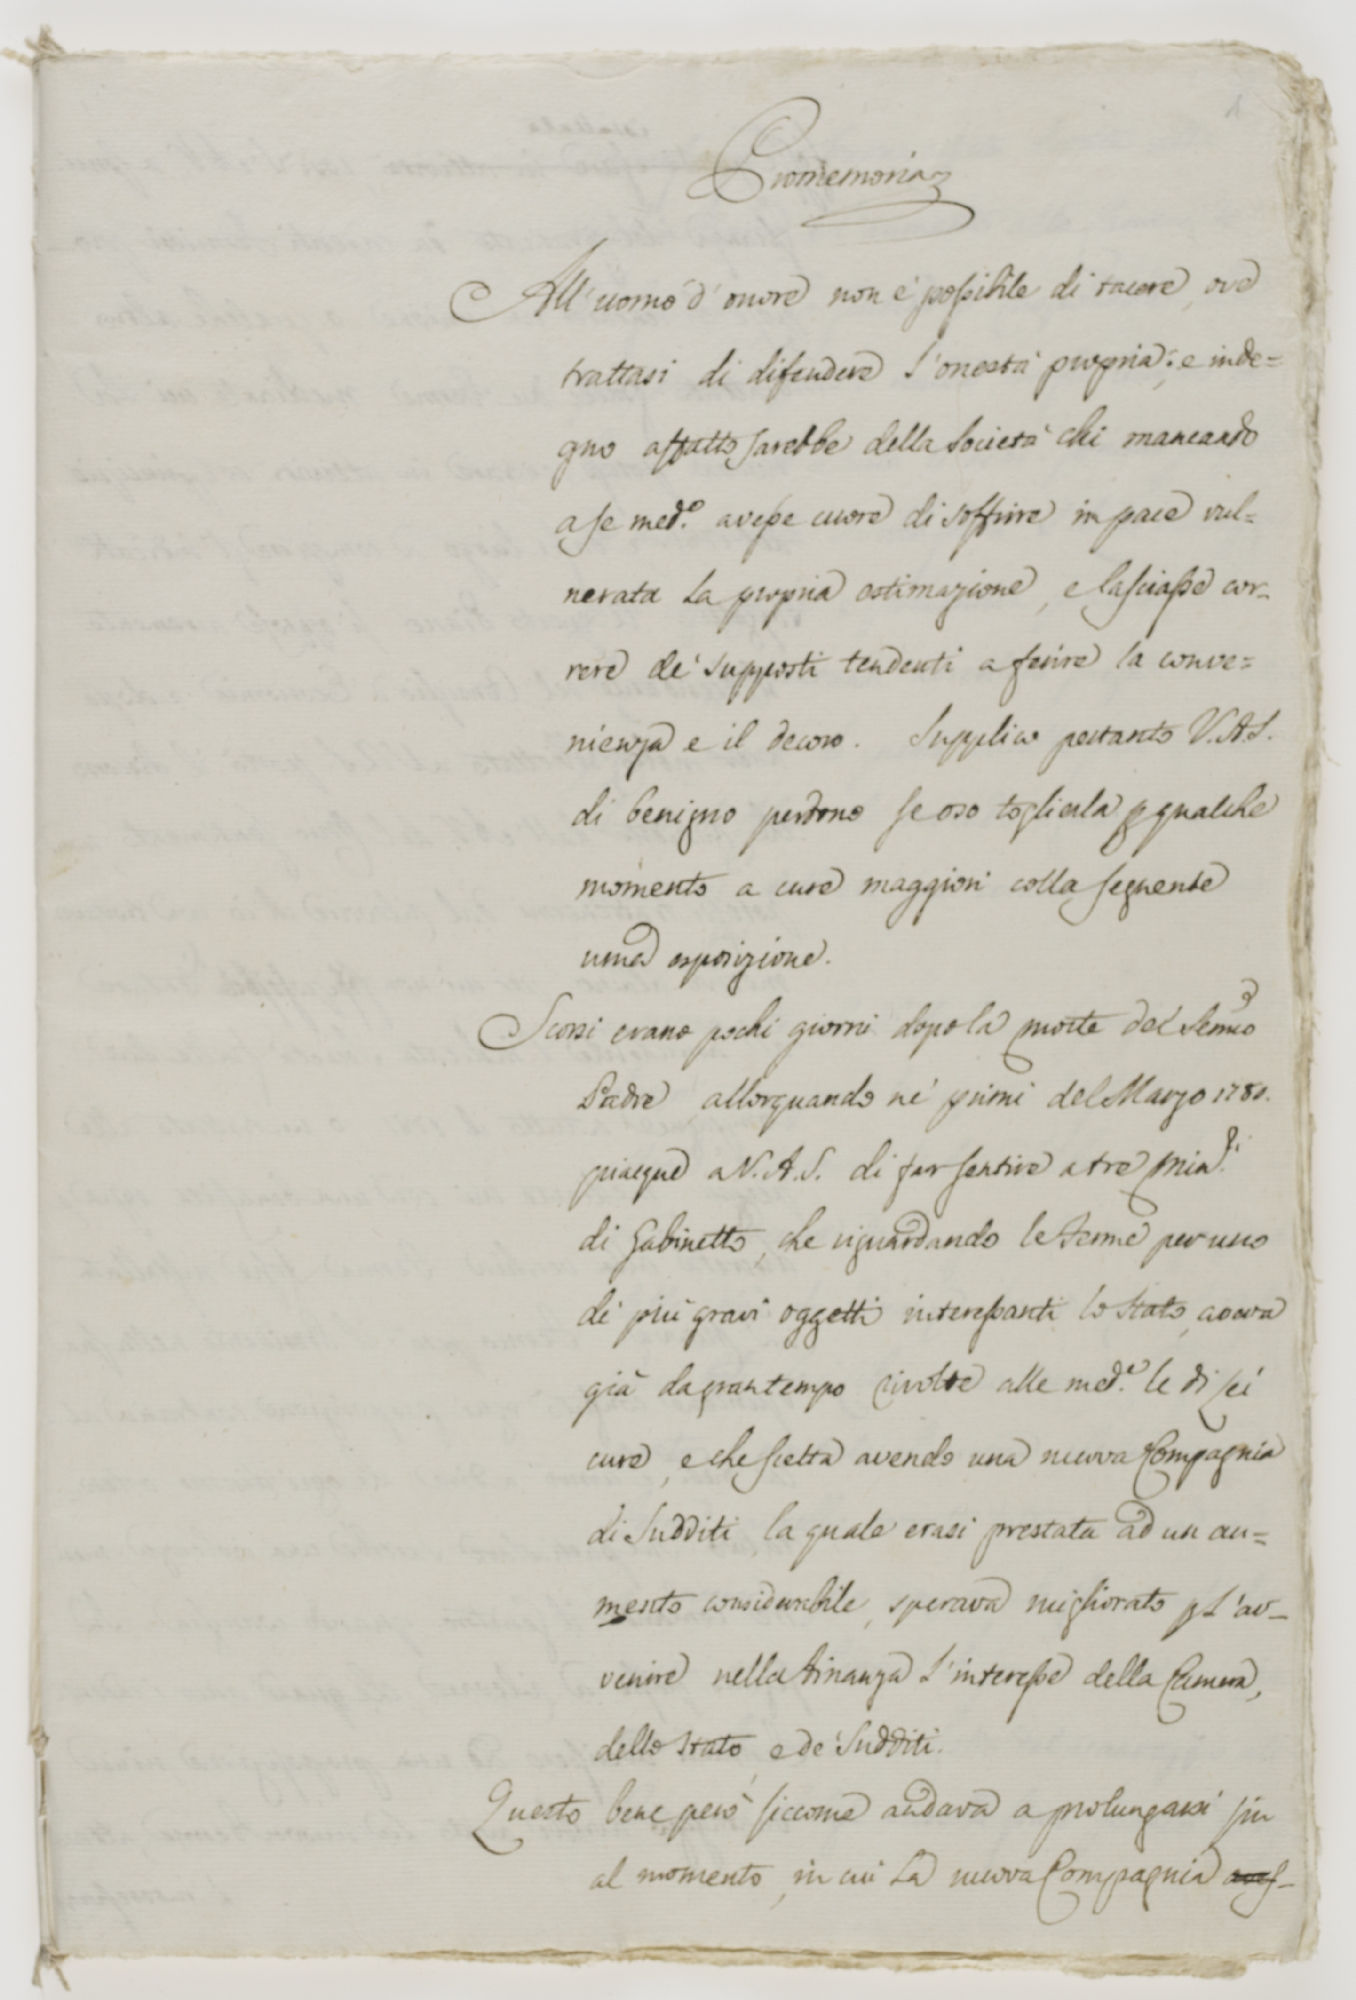 1
Promemoria
All'uomo d'onore non è possibile di tacere, ove
trattasi di difendere l'onestà propria; e inde=
gno affatto sarebbe della Società chi mancando
a se med.º avesse cuore di soffrire in pace vul=
nerata la propria estimazione, e lasciasse cor-
rere de' supposti tendenti a ferire la conve=
nienza e il decoro. Supplico pertanto V.A.S.
di benigno perdono se oso toglierla p qualche
momento a cure maggiori colla seguente
uma esposizione.
Scorsi erano pochi giorni dopo la morte del Sermo
Padre allorquando ne' primi del Marzo 1780.
piacque a V.A.S. di far sentire a tre
di Gabinetto, che riguardando le Ferme per uno
di più gravi oggetti interessanti lo Stato, aveva
già da gran tempo rivolte alle med.e le di lei
cure, e che scelta avendo una nuova Compagnia
di Sudditi la quale erasi prestata ad un au=
mento considerabile, sperava migliorato p l'av-
venire nella Finanza l'interesse della Camera,
dello Stato, e de' Sudditi.
Questo bene però siccome andava a prolungarsi sin
al momento, in cui la nuova Compagnia